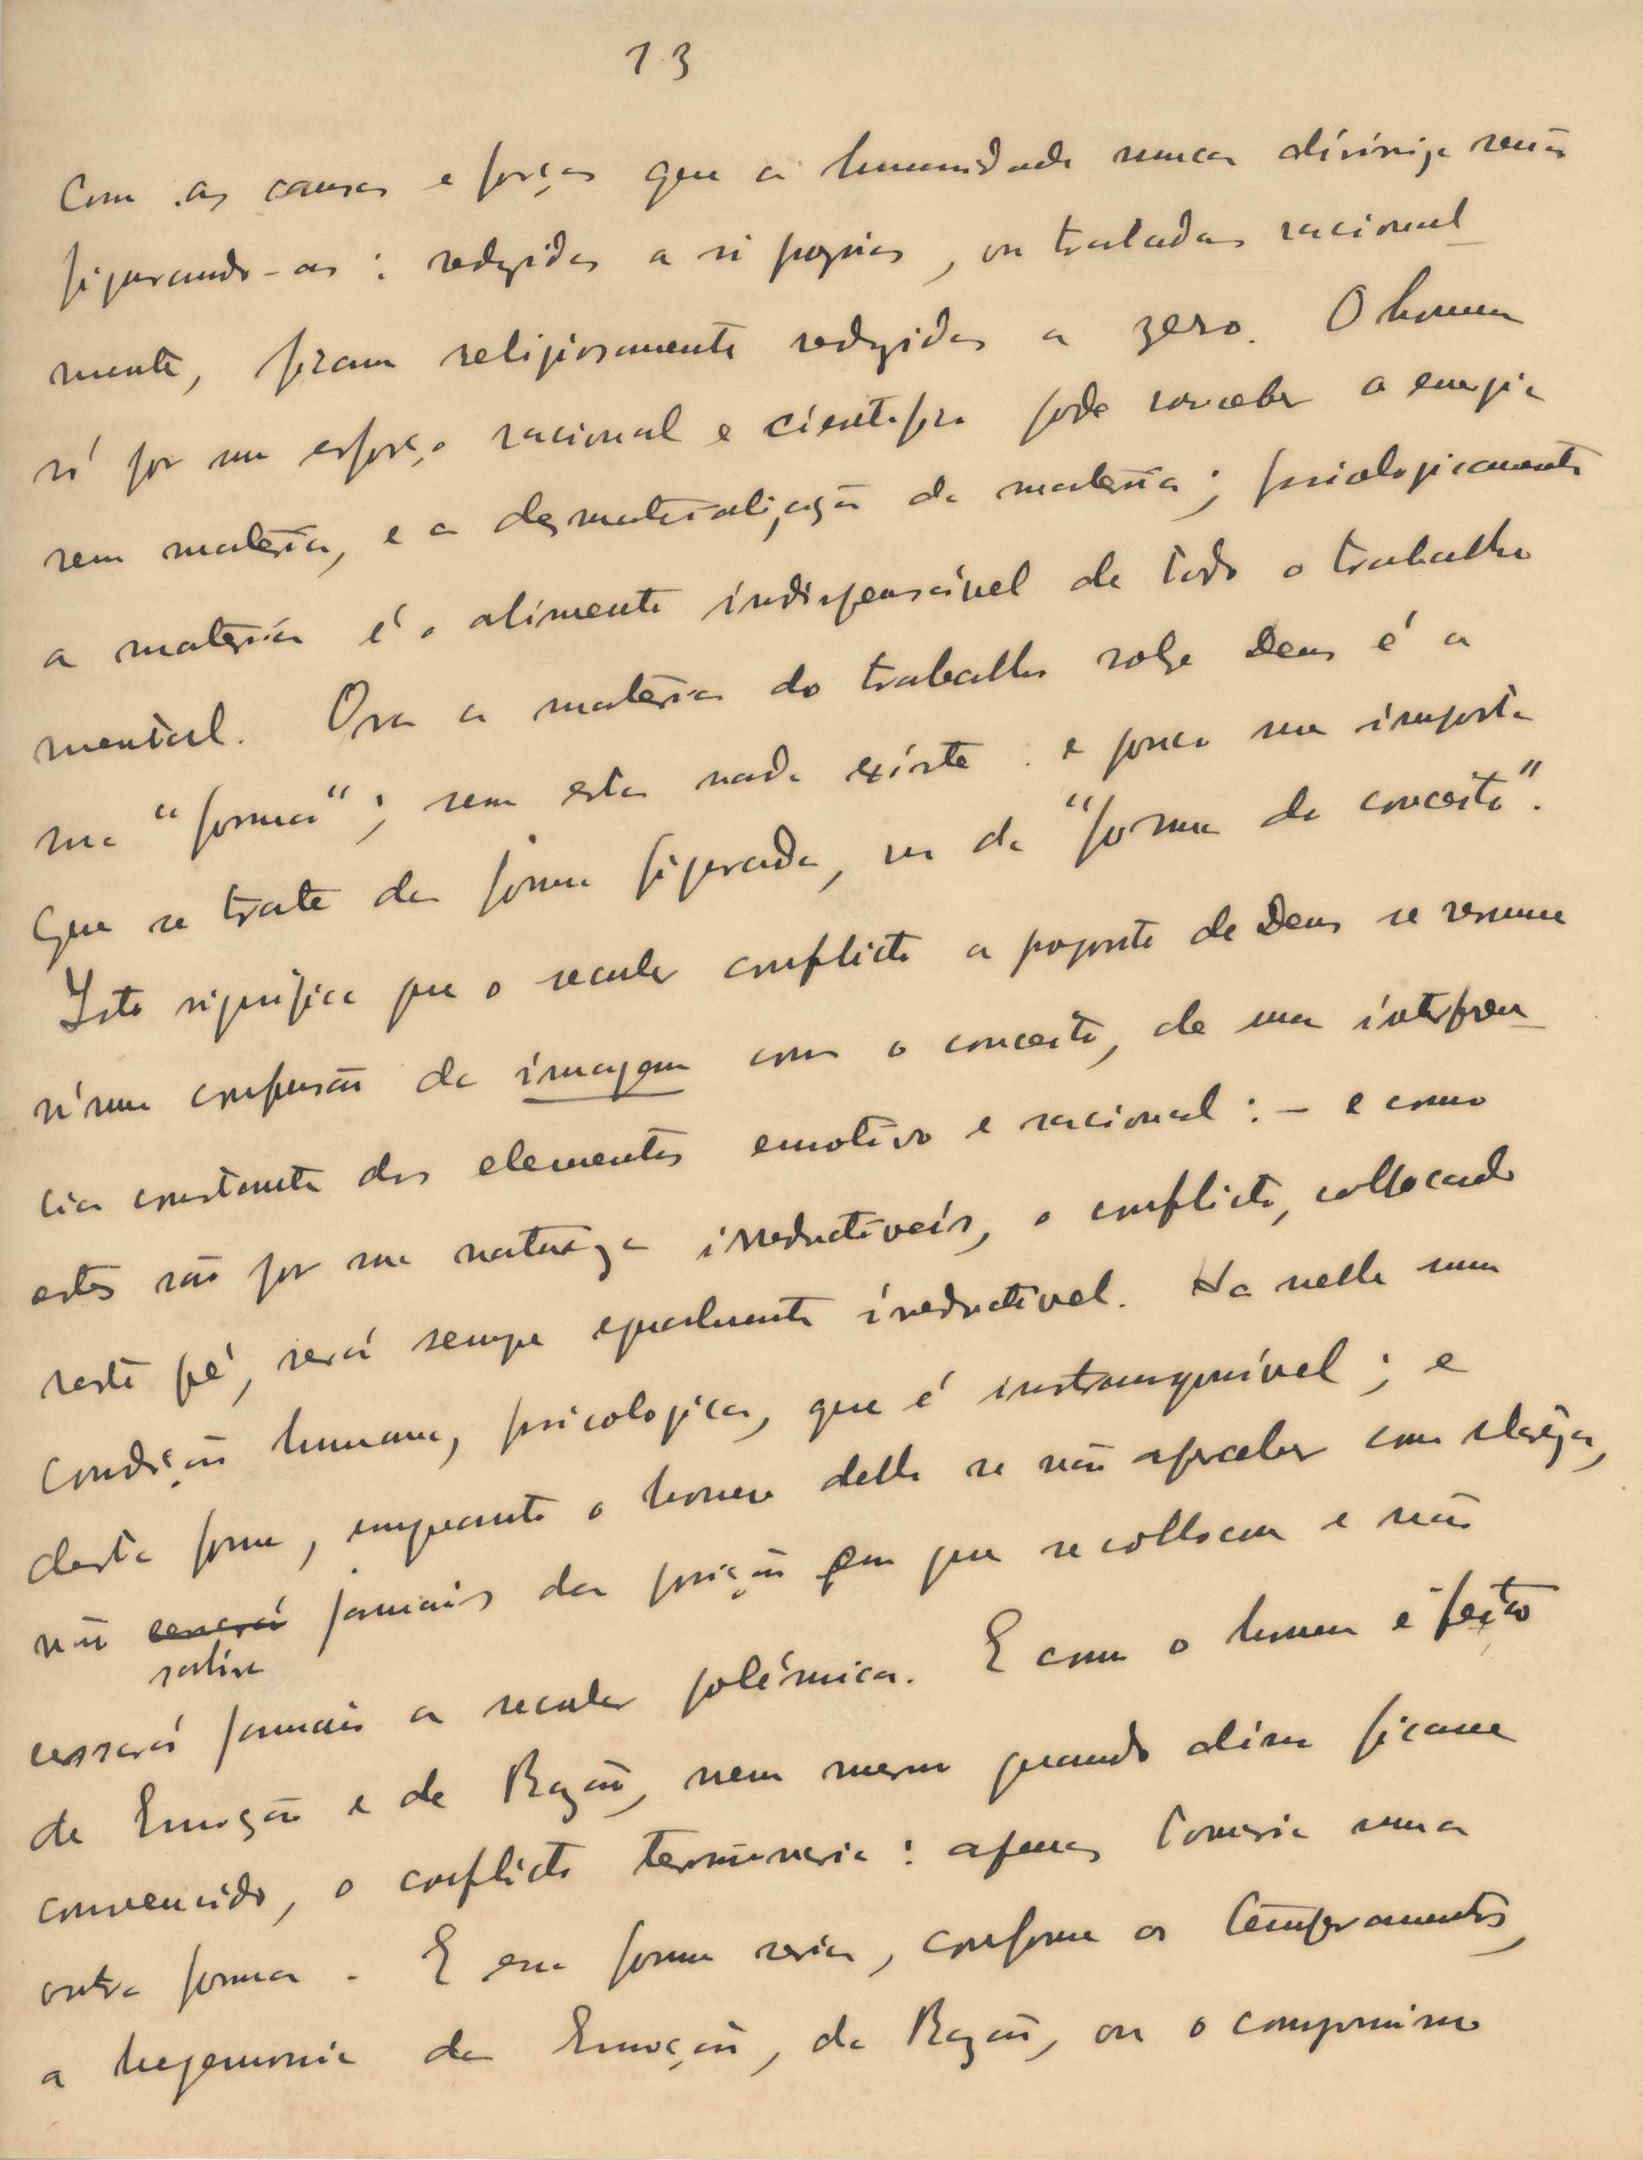 13
Com as causas e forças que a humanidade nunca divinisa senão
figurando-as: reduzidas a si proprias, ou tratadas racional_
mente, foram religiosamente reduzidas a zero. O homem
só por um esforço racional e cientifico pode conceber a energia
sem materia, e a desmaterialização da materia; psicologicamente
a materia é o alimento indispensável de todo o trabalho
mental. Ora a materia do trabalho sobre Deus é a
sua "forma"; sem esta nada existe: e pouco me importa
que se trate da forma figurada, ou da "forma de conceito".
Isto significa que o secular conflicto a proposito de Deus se resume
n'uma confusão da imagem com o conceito, de uma interferen_
cia constante dos elementos emotivo e racional: – e como
estes são por sua natureza irreductiveis, o conflicto, collocado
neste pé, será sempre egualmente irreductivel. Ha nelle uma
condição humana, psicologica, que é instransponível; e
desta forma, emquanto o homem della se não aperceber com clareza,
não sahirá jamais da posição em que se collocou e não
cessará jamais a secular polémica. E com o homem é feito
de Emoção e de Razão, nem mesmo quando disso ficasse
convencido, o conflicto terminaria: apenas tomaria uma
outra forma. E essa forma seria, conforme os temperamentos,
a hegemonia da Emoção, da Razão, ou o compromisso